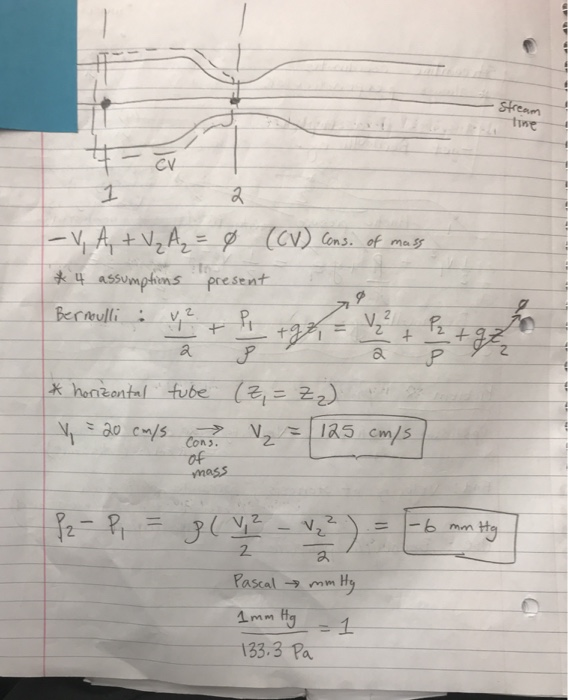 Stream
line
CV
1 2
-V₁ A₁ + V₂ A₂ = ∅ (CV) Cons. of mass
* 4 assumptions present
Bernoulli : V₁²/2 + P₁/ρ + gz₁ →∅ = V₂²/2 + P₂/ρ + gz₂ →∅
* horizontal tube (z₁ = z₂)
V₁ = 20 cm/s → V₂ = 125 cm/s
Cons.
of
mass
P₂ - P₁ = ρ( V₁²/2 - V₂²/2 ) = -6 mm Hg
Pascal → mm Hg
1 mm Hg / 133.3 Pa = 1